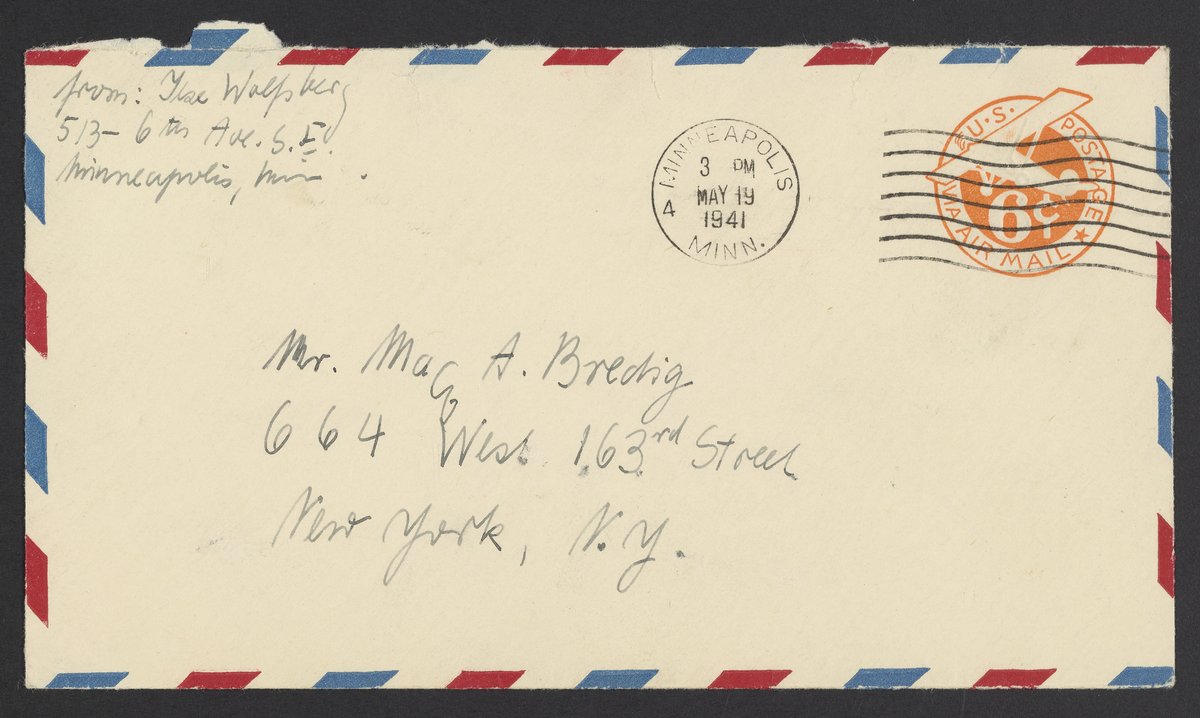 from: Ilse Wolfsberg
513 - 6th Ave. S. E.
Minneapolis, Minn
4 MINNEAPOLIS MINN.
3 PM
MAY 19
1941
U.S. POSTAGE
6¢
VIA AIR MAIL
Mr. Max A. Bredig
664 West 163rd Street
New York, N.Y.